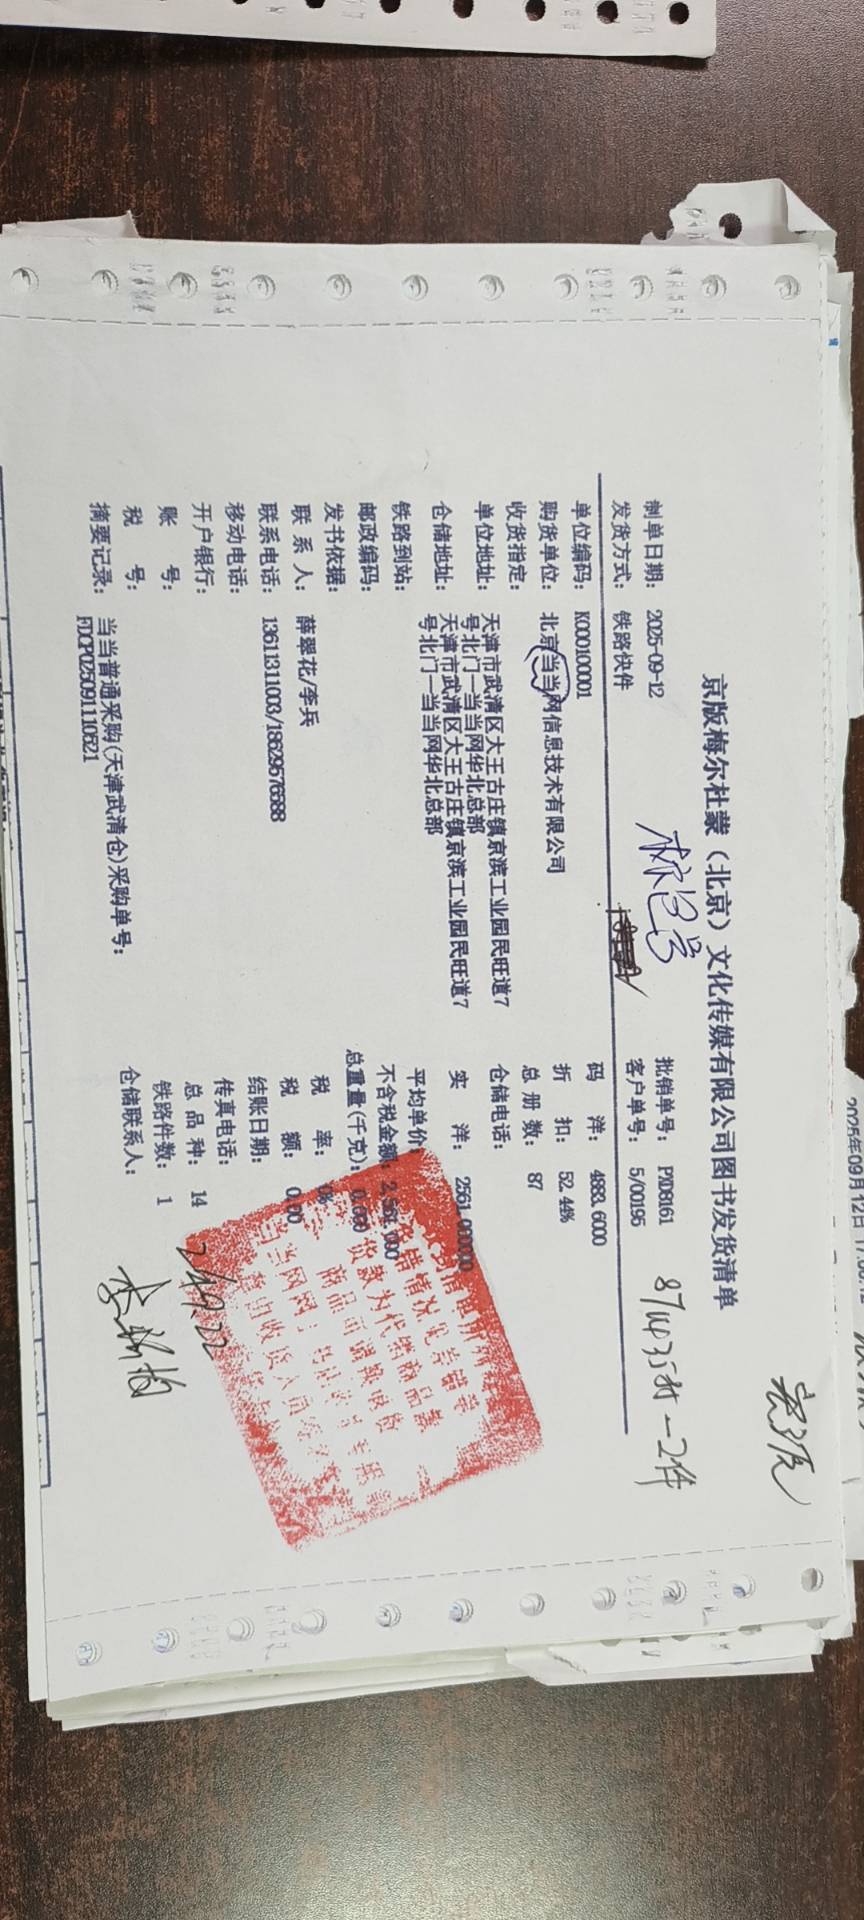 京版梅尔杜蒙（北京）文化传媒有限公司图书发货清单
制单日期： 2025-09-12
批销单号： PXD8161
发货方式： 铁路快件
客户单号： 5/00195
单位编码： K000100001
码 洋： 4883.6000
购货单位： 北京当当网信息技术有限公司
折 扣： 52.44%
收货指定：
总 册 数： 87
单位地址： 天津市武清区大王古庄镇京滨工业园民旺道7
号北门—当当网华北总部
仓储电话：
仓储地址： 天津市武清区大王古庄镇京滨工业园民旺道7
号北门—当当网华北总部
实 洋： 2561.00000
铁路到站：
平均单价：
邮政编码：
不含税金额： 2,561.000
发书依据：
总重量(千克)： 0.000
联 系 人： 薛翠花/李兵
税 率： 0%
联系电话： 13611311003/18629676688
税 额： 0.00
移动电话：
结账日期：
开户银行：
传真电话：
账 号：
总 品 种： 14
税 号：
铁路件数： 1
摘要记录： 当当普通采购(天津武清仓)采购单号：
仓储联系人：
2025年09月12日